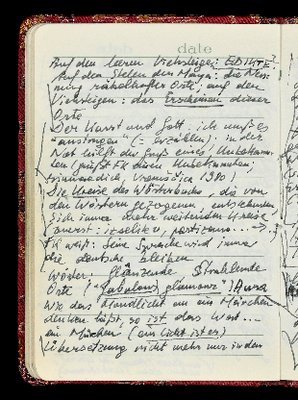 date
Auf den leeren Viehsteigen: EDIKTE?
Auf den Stelen der Maya: die Nen-
nung rätselhafter Orte; auf den
Viehsteigen: das Erscheinen dieser
Orte
Der Karst und Gott, ich muß es
aussingen (= erzählen); in der
Not hilft der Gruß eines Unbekann-
ten (grüßt FK diesen Unbekannten;
Die Kreise des Wörterbuchs, die von
den Wörtern gezogenen, entstehenden,
sich immer mehr weitenden Kreise
FK weiß: Seine Sprache wird immer
die deutsche bleiben
Wörter, glänzende, Strahlende
Orte ("fabulous glamour") Aura
Wie das Mondlicht an ein Märchen
denken läßt, so ist das Wort...
ein Märchen (ein Licht ist es)
Übersetzung nicht mehr nur in den